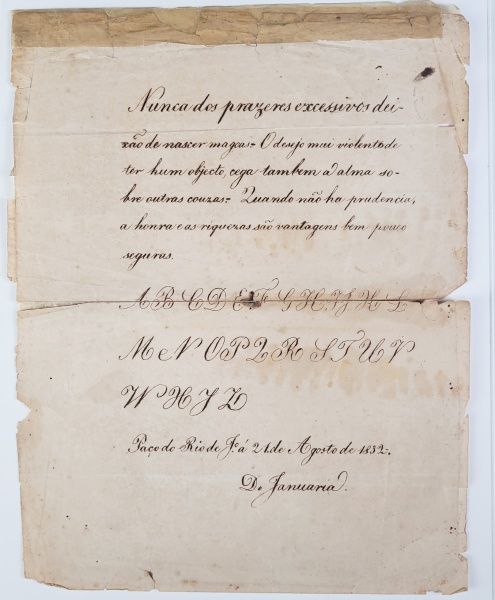 Nunca dos prazeres excessivos dei-
xão de nascer magoas= O desejo mui violento de
ter hum objecto, cega tambem a alma so-
bre outras couzas= Quando não ha prudencia,
a honra e as riquezas são vantagens bem pouco
seguras.
A B C D E F G H I J K L
M N O P Q R S T U V
W X Y Z
Paço do Rio de J.º á 21 de Agosto de 1832.
D. Januaria.